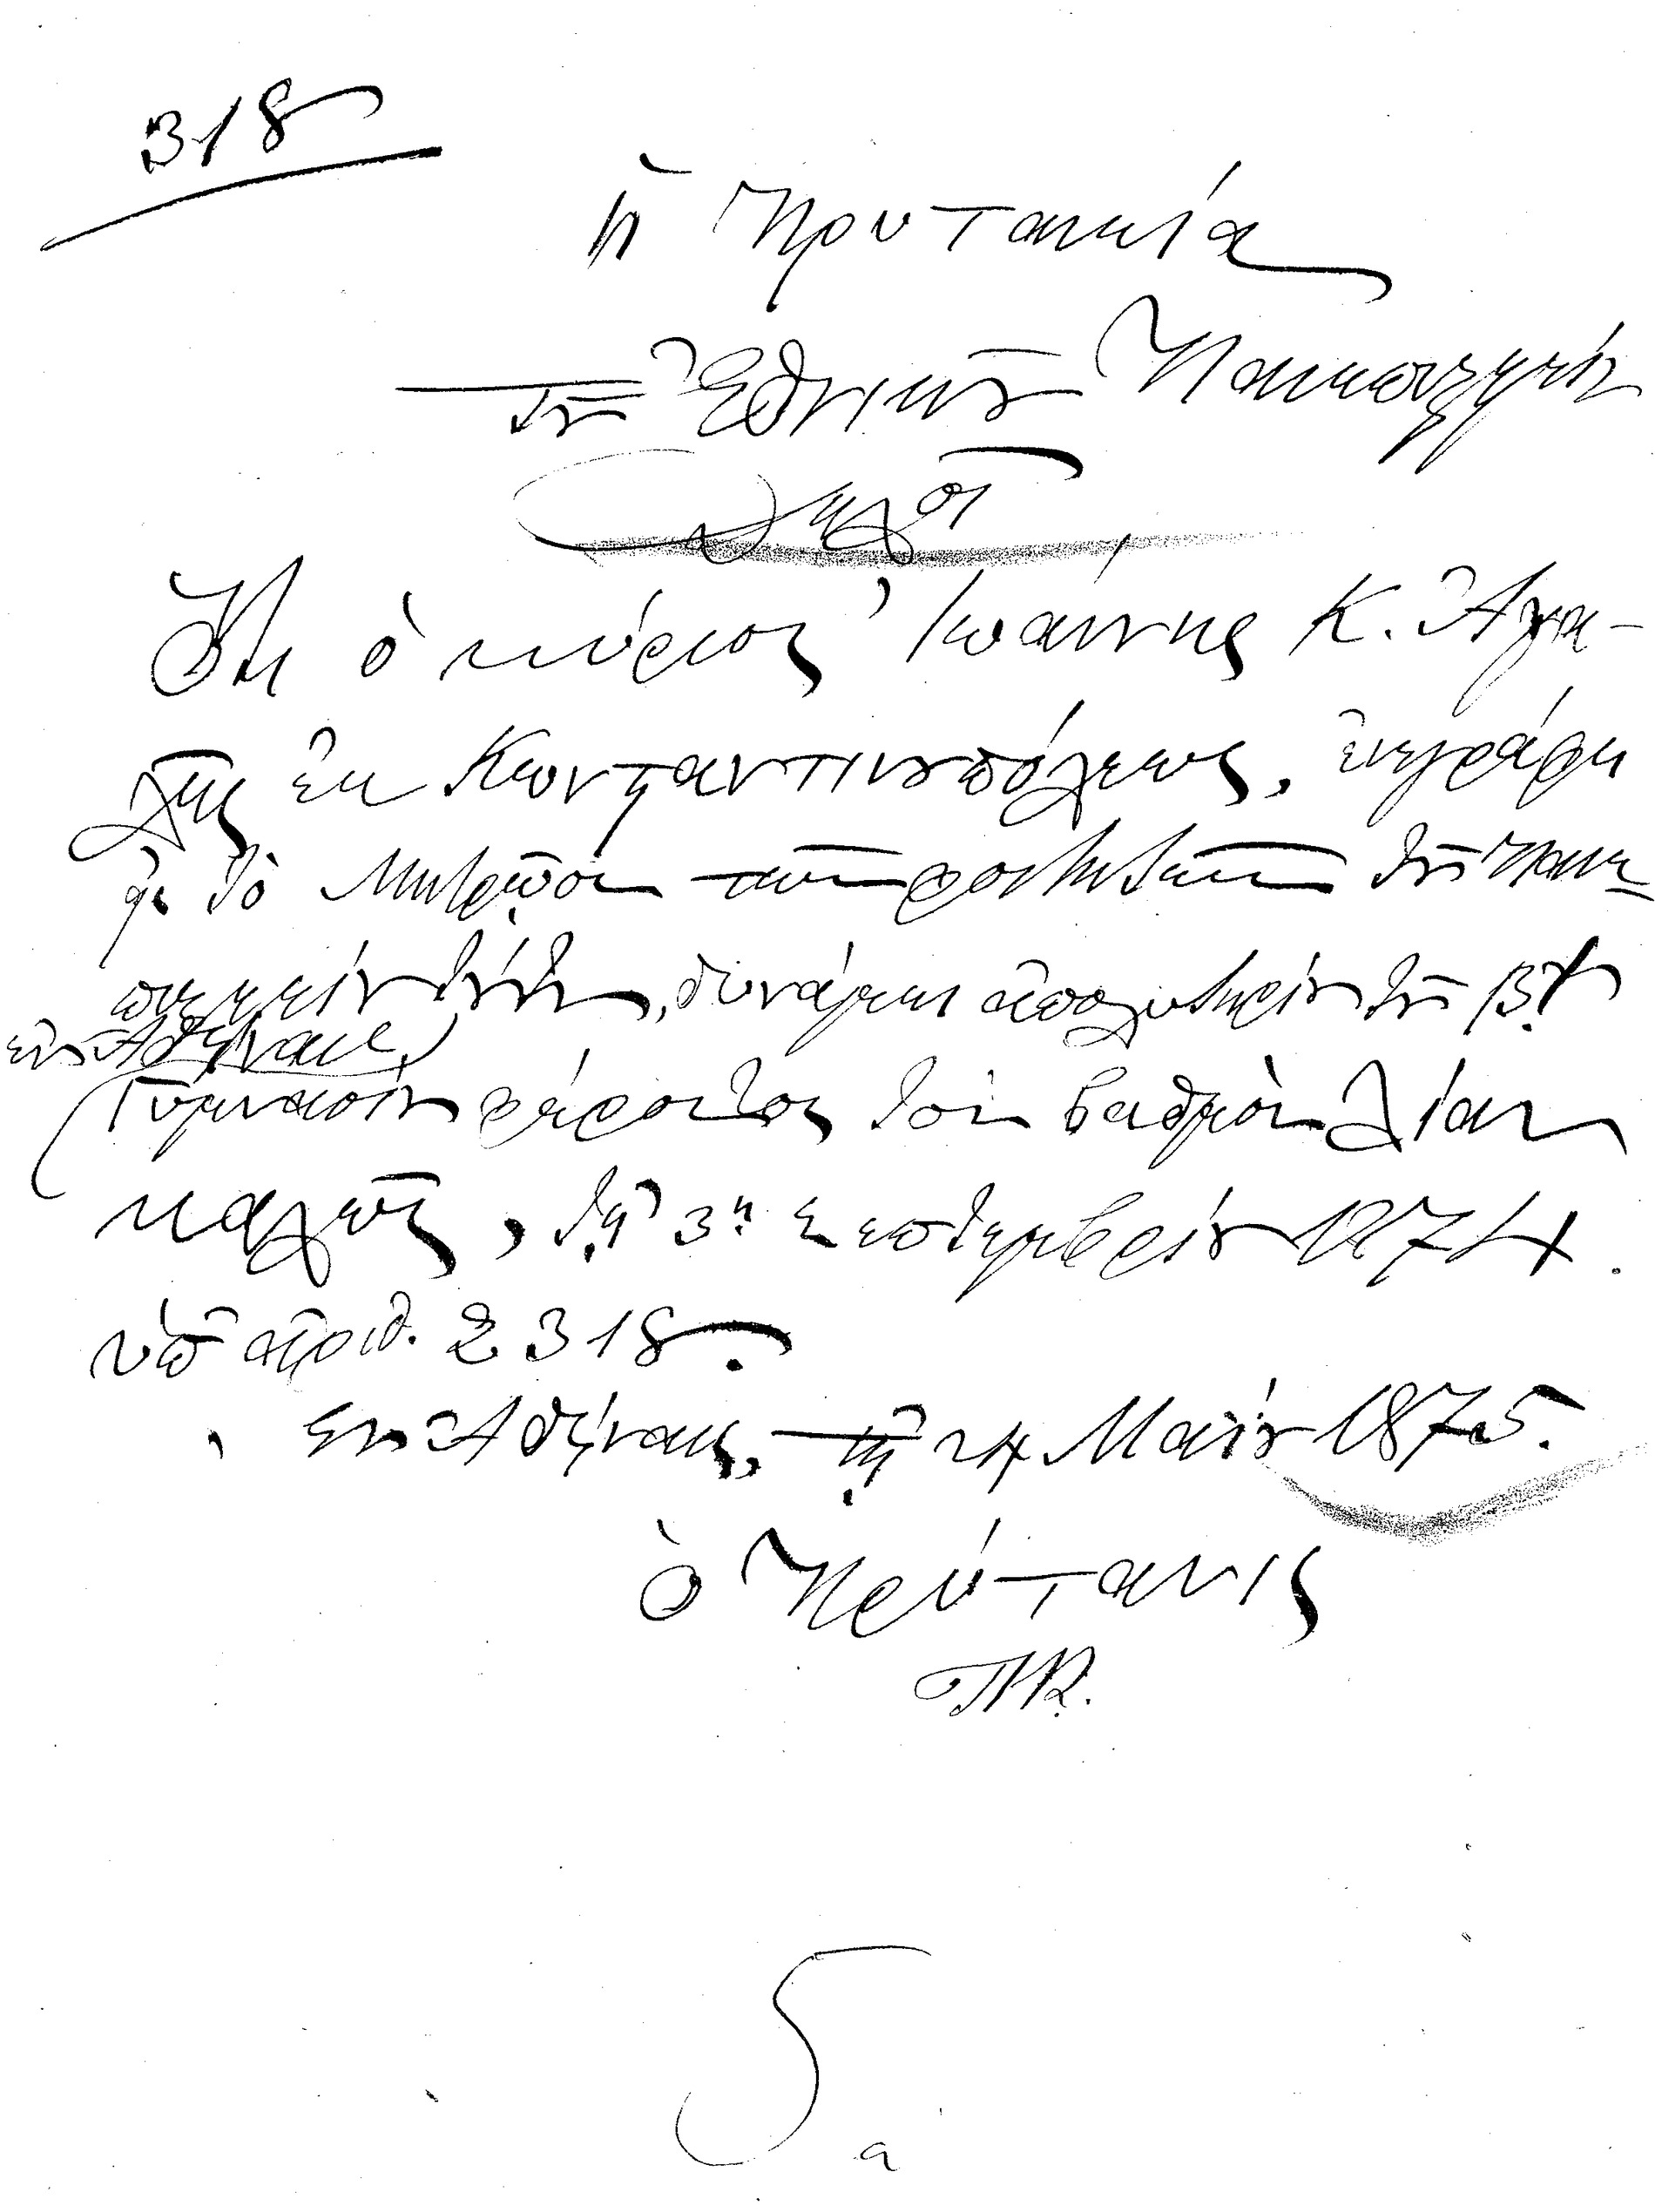 318
Ἡ Πρυτανεία
τοῦ Ἐθνικοῦ Πανεπιστημίου
Δηλοῖ
Ὅτι ὁ κύριος Ἰωάννης Κ. Ἀγα-
λῆς ἐκ Κωνσταντινουπόλεως, ἐνεγράφη
εἰς τὸ Μητρῷον τῶν φοιτητῶν τοῦ Πανε-
πιστημίου τούτου, δυνάμει ἀπολυτηρίου τοῦ Β.
ἐν Ἀθήναις
Γυμνασίου φέροντος τὸν βαθμὸν λίαν
καλῶς, τῇ 3ῃ Σεπτεμβρίου 1874.
ὑπ' ἀριθ. 2318.
Ἐν Ἀθήναις, τῇ 24 Μαΐου 1875.
ὁ Πρύτανις
5
α